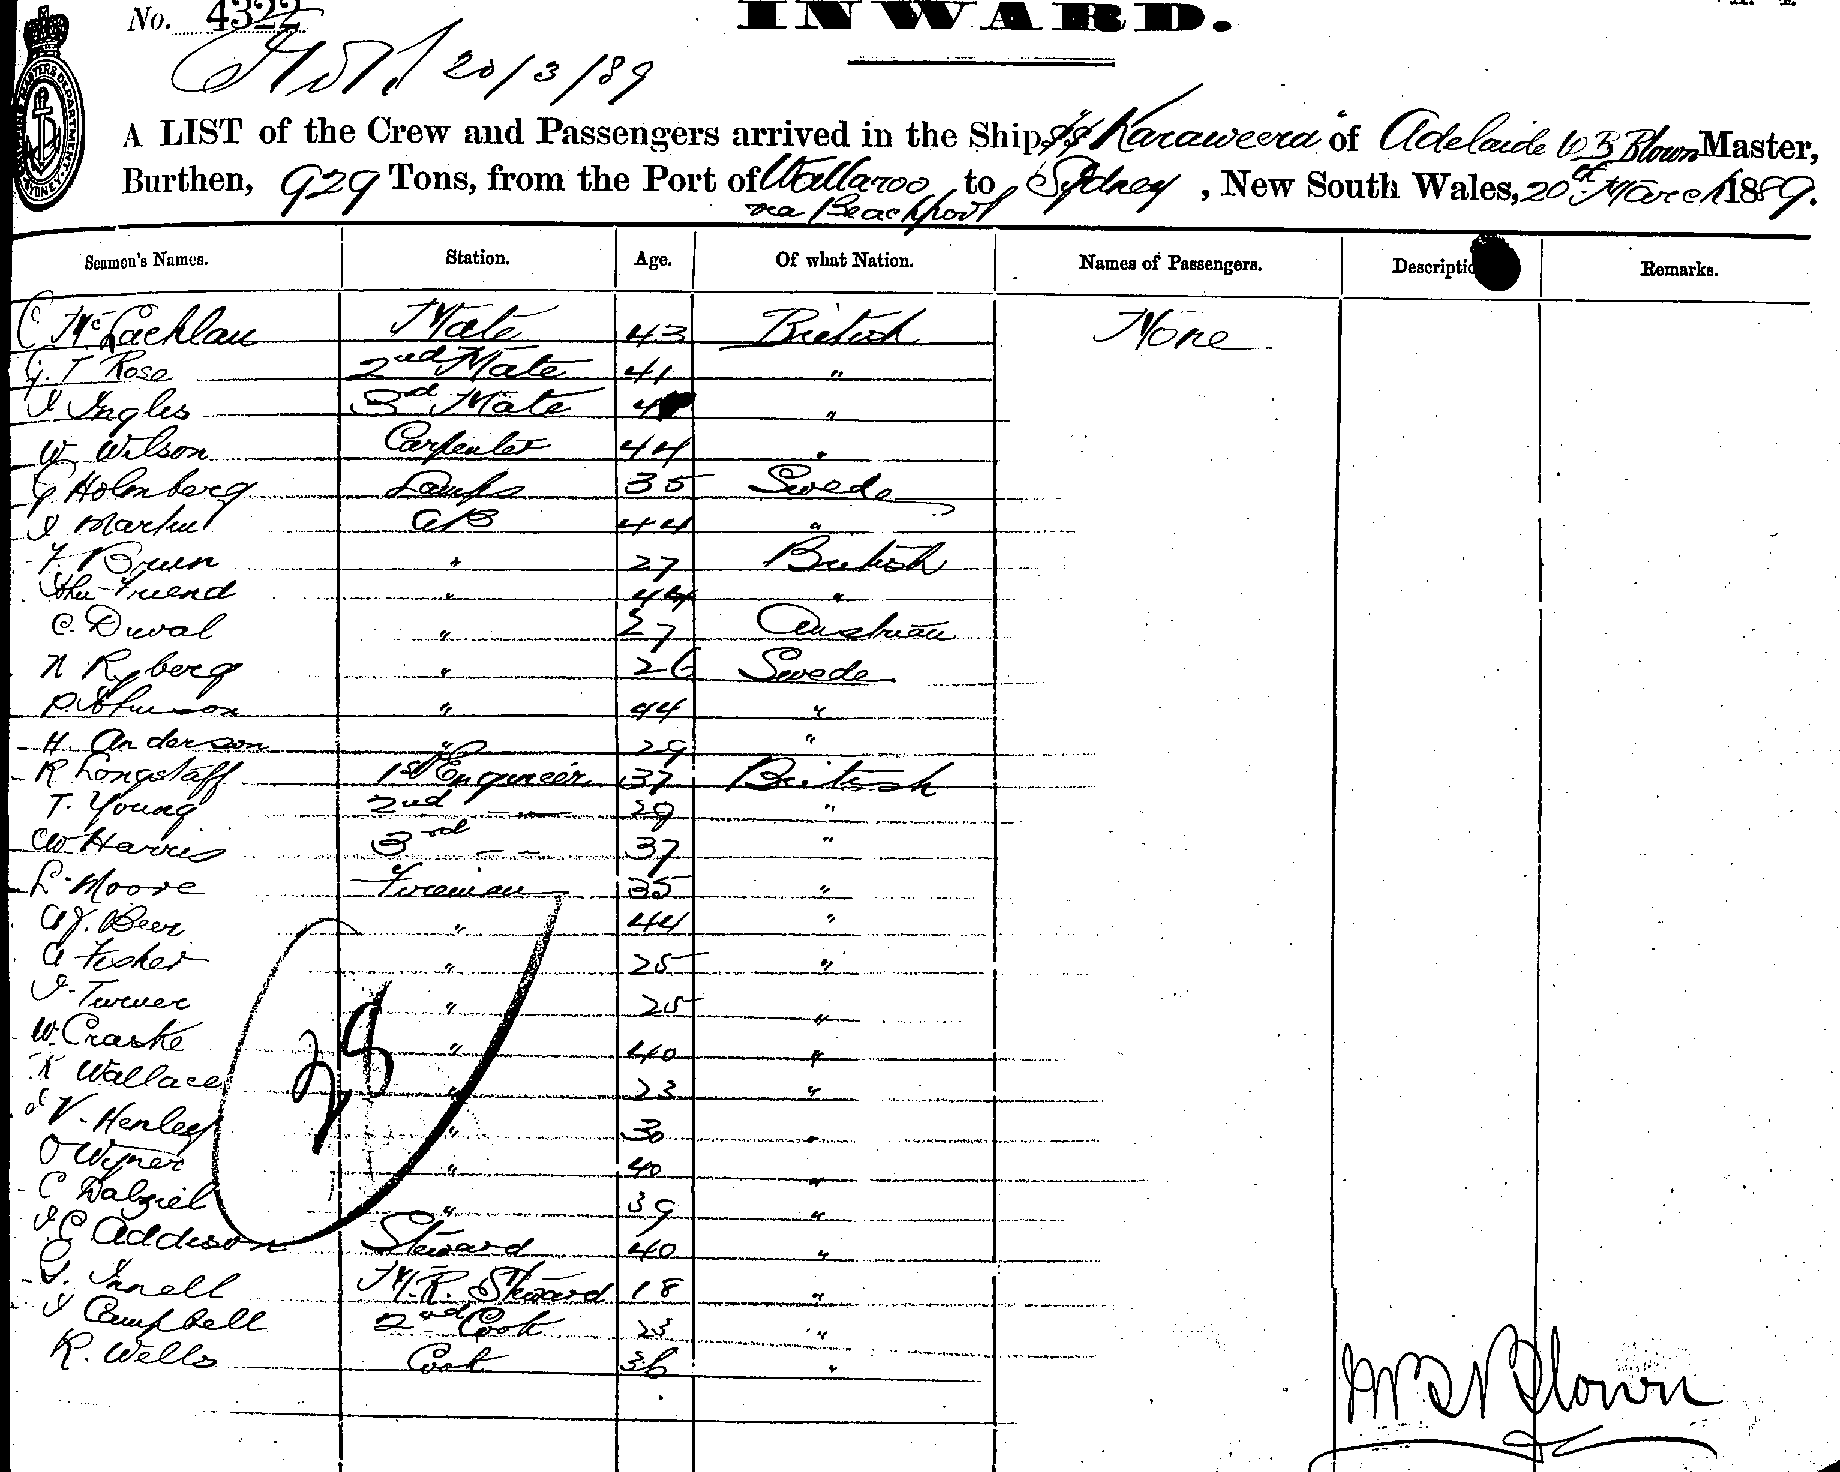 No. 4322
INWARD.
20/3/89
A LIST of the Crew and Passengers arrived in the Ship SS "Karaweera" of Adelaide W B Blown Master,
Burthen, 929 Tons, from the Port of Wallaroo to Sydney, New South Wales, 20th March 1889.
via Beachport
Seamen's Names. Station. Age. Of what Nation. Names of Passengers. Descriptio Remarks.
C McLachlan Mate 43 British None
G. T Rose 2nd Mate 41 "
J Ingles 3rd Mate "
W Wilson Carpenter 44 "
G Holmberg Lamps 35 Swede
J Martin AB 44 "
F. Bruin " 27 British
Jno Friend " 44 "
C. Duval " 27 Austrian
N Ryberg " 26 Swede
P. Johnson " 44 "
H. Anderson " 29 "
R Longstaff 1st Engineer 37 British
T. Young 2nd — 29 "
W Harris 3rd — — 37 "
L. Moore Fireman 35 "
A J. Beer " 44 "
A Fisher " 25 "
J. Turner " 25 "
W. Craske " 40 "
R Wallace " 23 "
V. Henley " 30 "
O Wyner " 40 "
C Dalziel " 39 "
J. E Addison Steward 40 "
G. Innell M.R. Steward 18 "
J Campbell 2nd Cook 23 "
R. Wells Cook 36 "
28
W B Blown